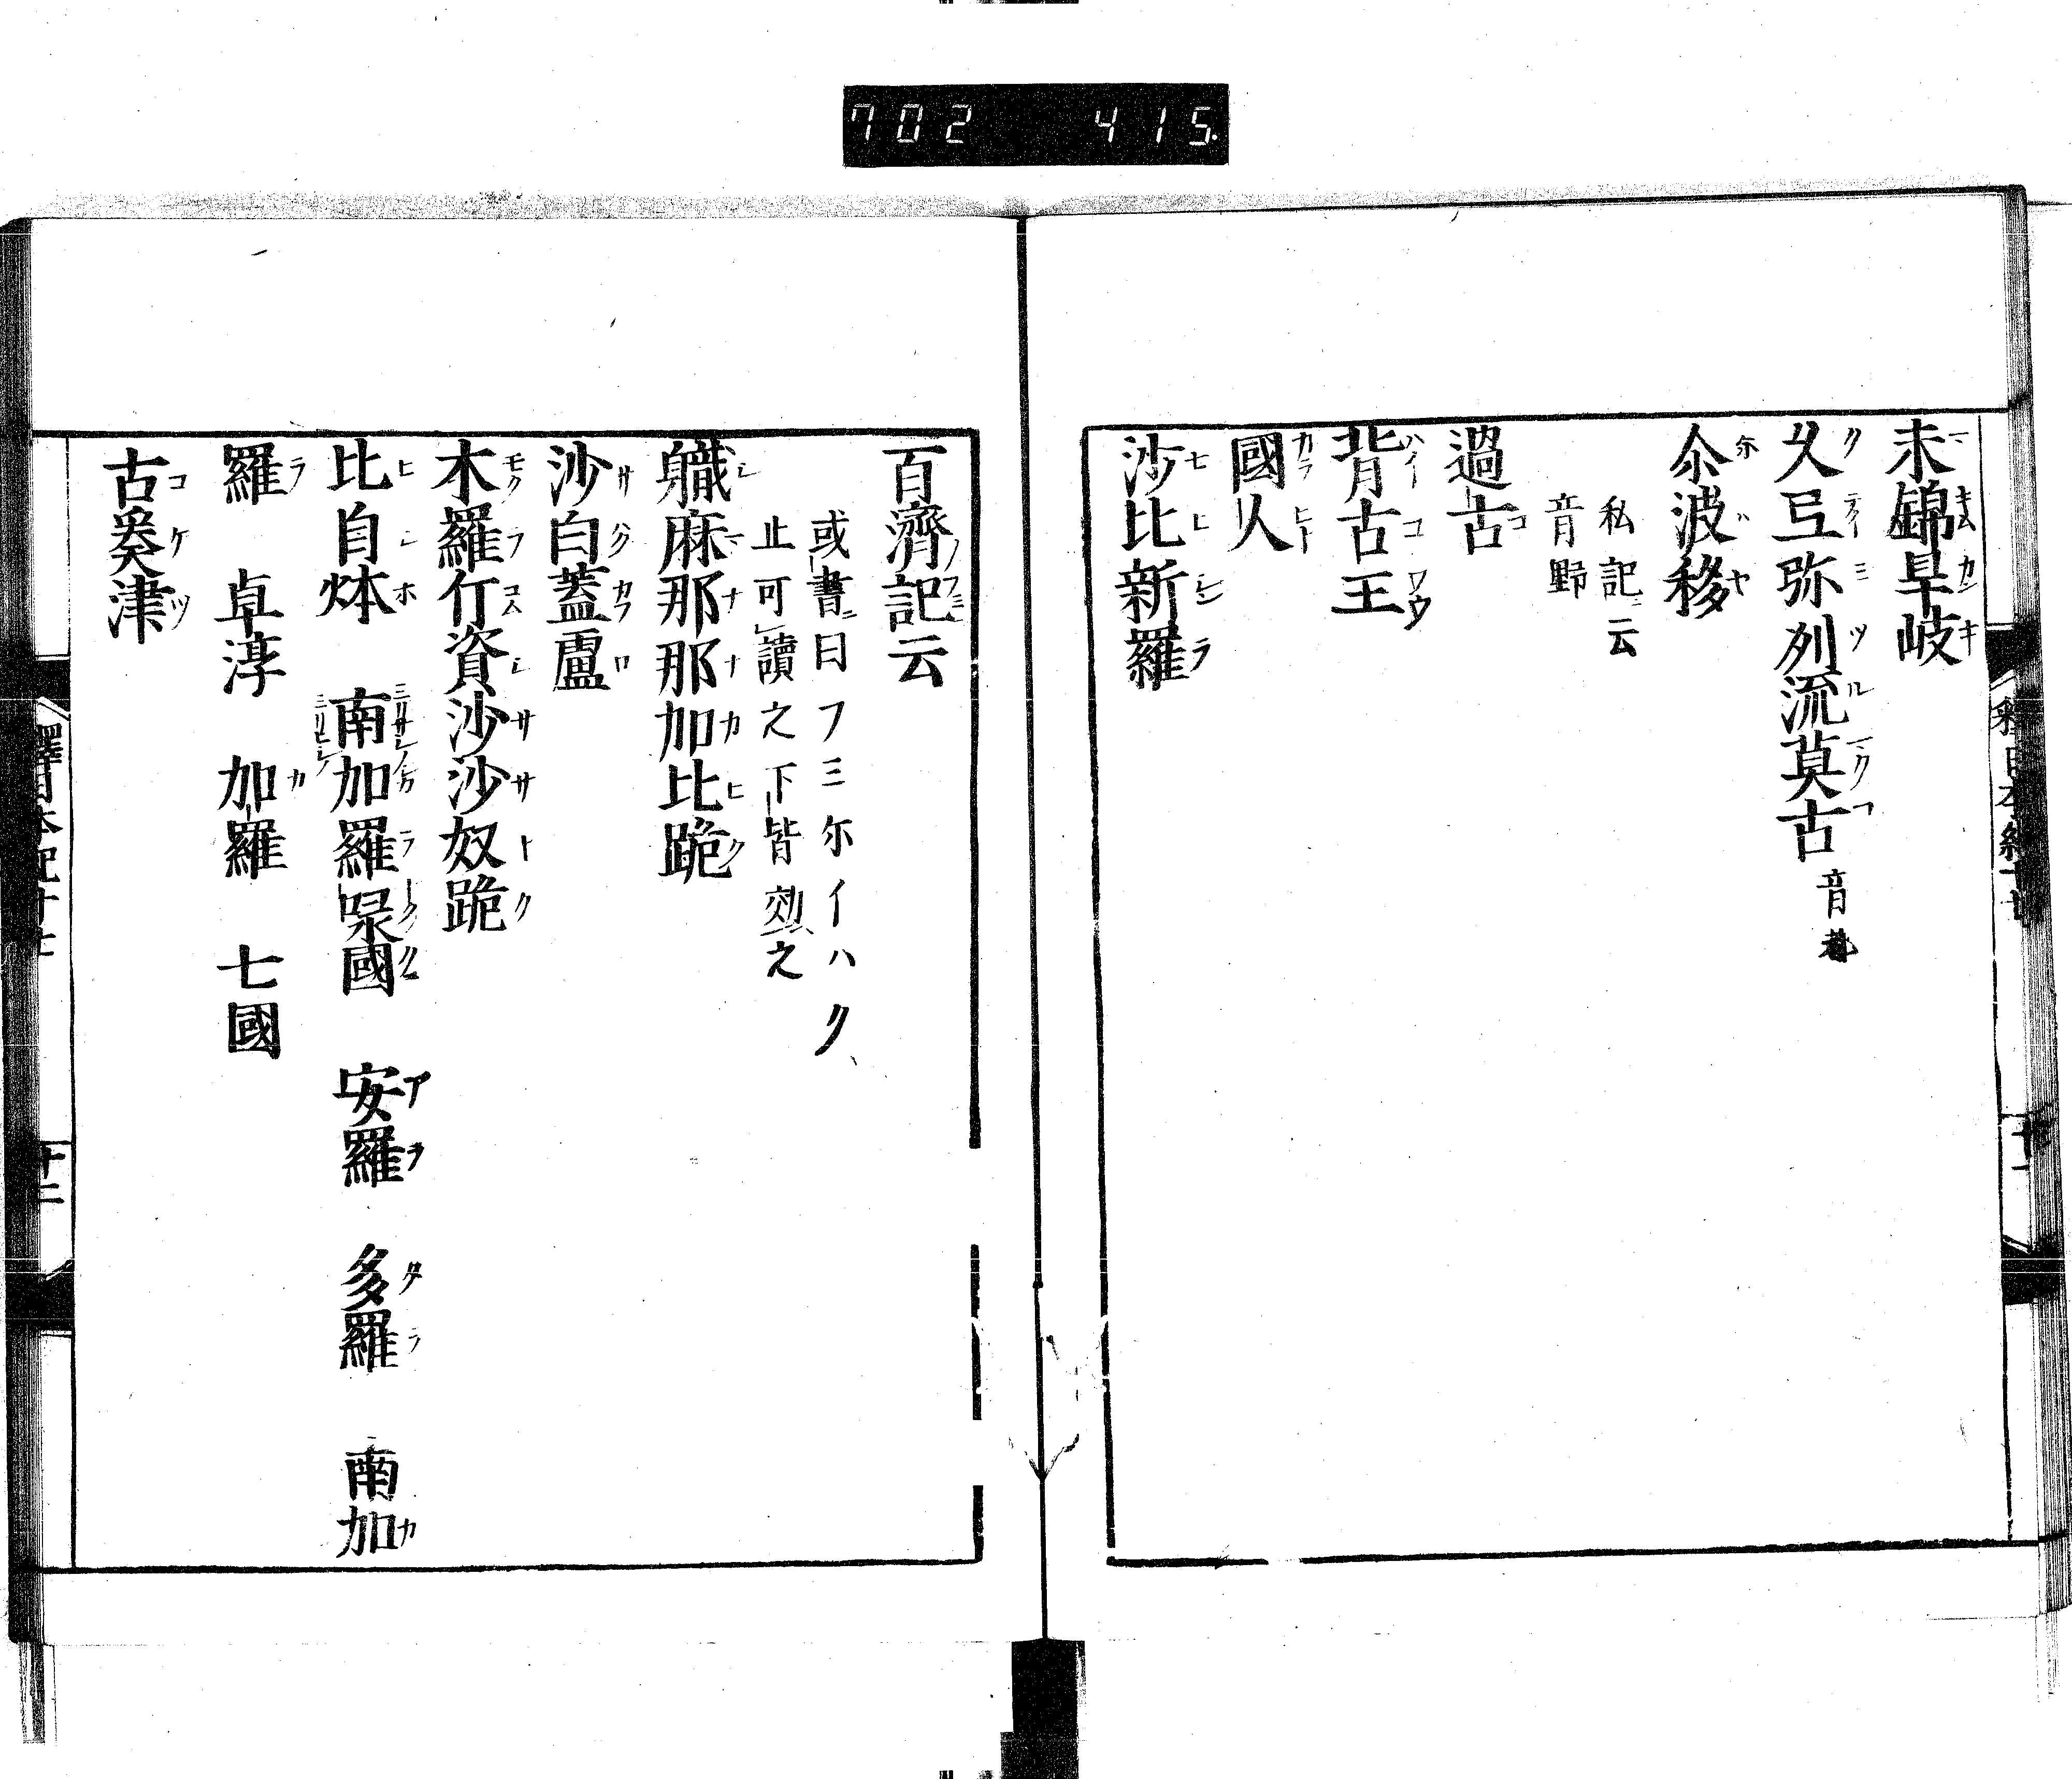 702 415
末錦旱岐
久弖弥列流莫古 音巷
私記云
尒波移
音野
過古
背古王
國人
沙比新羅
百濟記云
或書曰フミ尓イハク
止可讀之下皆効之
職麻那那加比跪
沙白蓋盧
木羅斤資沙沙奴跪
比自㶱 南加羅㖨國 安羅 多羅 南加
羅 卓淳 加羅 七國
古奚津
釋日本紀十七
十二